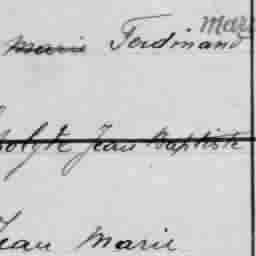 Marie Ferdinand Mari
olyte Jean Baptiste
Jean Marie